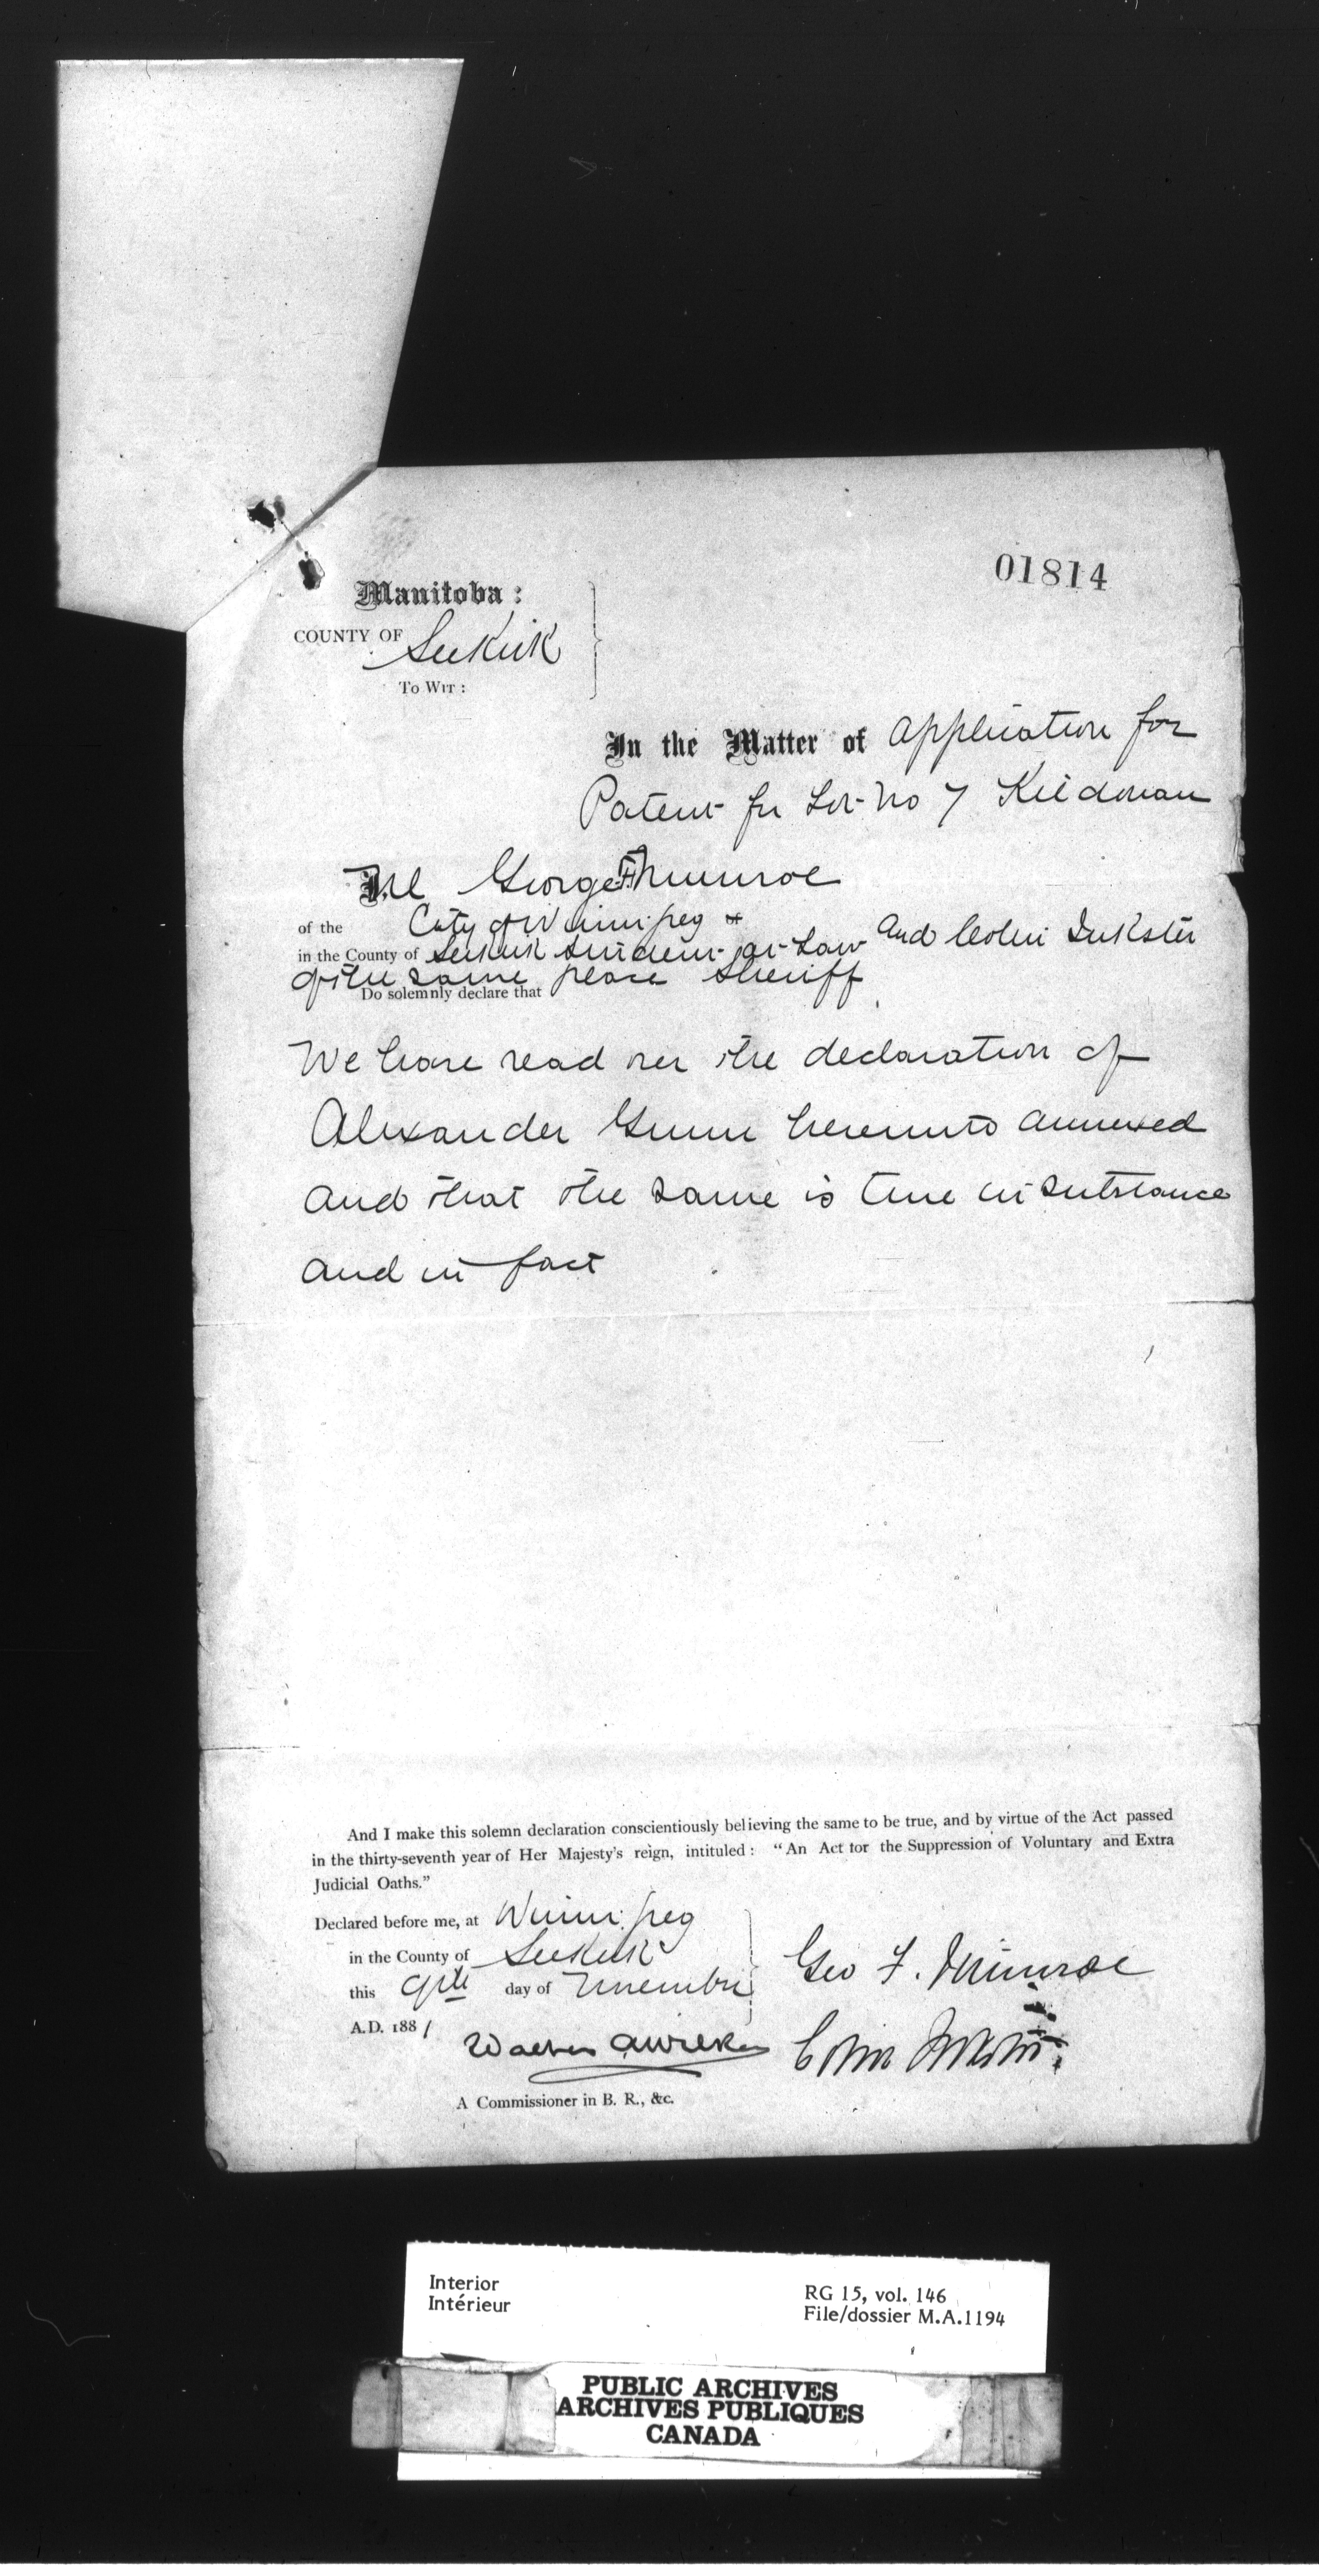 01814
Manitoba :
COUNTY OF Selkirk
To Wit :
In the Matter of Application for
Patent for Lot No 7 Kildonan
We George F Munroe
of the City of Winnipeg
in the County of Selkirk Student-at-Law and Colin Inkster
of the same place Sheriff
Do solemnly declare that
We have read over the declaration of
Alexander Gunn hereunto annexed
and that the same is true in substance
and in fact
And I make this solemn declaration conscientiously believing the same to be true, and by virtue of the Act passed
in the thirty-seventh year of Her Majesty's reign, intituled : "An Act for the Suppression of Voluntary and Extra
Judicial Oaths."
Declared before me, at Winnipeg
in the County of Selkirk
this 9th day of November
A.D. 1881
Geo F. Munroe
Colin Inkster
Walter
A Commissioner in B. R., &c.
Interior
Intérieur
RG 15, vol. 146
File/dossier M.A.1194
PUBLIC ARCHIVES
ARCHIVES PUBLIQUES
CANADA